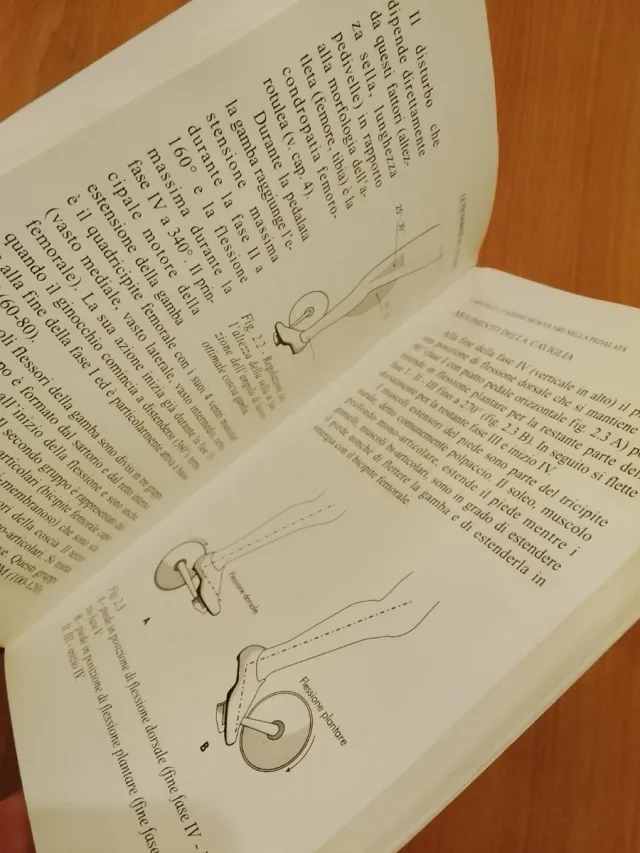 Il disturbo che
dipende direttamente
da questi fattori (altez-
za sella, lunghezza
pedivelle) in rapporto
alla morfologia dell'a-
tleta (femore, tibia) è la
condropatia femoro-
rotulea (v. cap. 4).
Durante la pedalata
la gamba raggiunge l'e-
stensione massima
durante la fase II a
160° e la flessione
massima durante la
fase IV a 340°. Il prin-
cipale motore della
estensione della gamba
è il quadricipite femorale con i suoi 4 ventri muscolari
(vasto mediale, vasto laterale, vasto intermedio, retto
femorale). La sua azione inizia già durante la fase IV
quando il ginocchio comincia a distendersi (360°) verso
alla fine della fase I ed è particolarmente attiva a
(60-80).
oli flessori della gamba sono divisi in tre gruppi
po è formato dal sartorio e dal retto interno
all'inizio della flessione e sono anche
Il secondo gruppo è rappresentato da
articolari (bicipite femorale, capo
-membranoso) che sono sia
ori della coscia. Il terzo
o-articolari. Si tratta
re. Questi gruppi
OM (100-120)
25° 30°
Fig. 2.2 - Regolazione del-
l'altezza della sella in fun-
zione dell'angolo di lavoro
ottimale coscia gamba.
MOVIMENTO DELLA CAVIGLIA
Alla fine della fase IV (verticale in alto) il
una posizione di flessione dorsale che si mantiene
fase I con piatto pedale orizzontale fig. 2.3 A) p
estende in flessione plantare per la restante parte del
fase I - II - III fino a 270° (fig. 2.3 B). In seguito si flette
dorsalmente per la restante fase III e inizio IV.
I muscoli estensori del piede sono parte del tricipite
surale, detto comunemente polpaccio. Il soleo, muscolo
profondo mono-articolare, estende il piede mentre i
gemelli, muscoli bi-articolari, sono in grado di estendere
il piede nonché di flettere la gamba e di estenderla in
sinergia con il bicipite femorale.
Flessione dorsale
A
Flessione plantare
B
Fig. 2.3
A - piede in posizione di flessione dorsale (fine fase IV -
inizio fase I)
B - piede in posizione di flessione plantare (fine fase
II, III - inizio IV